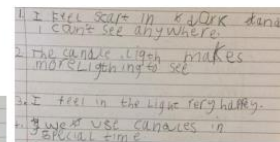 1. I Feel Scart in dark and
I can't see anywhere.
2 the candle ligth makes
more Ligthing to see
3. I feel in the Light very happy.
4. we use canales in
special time